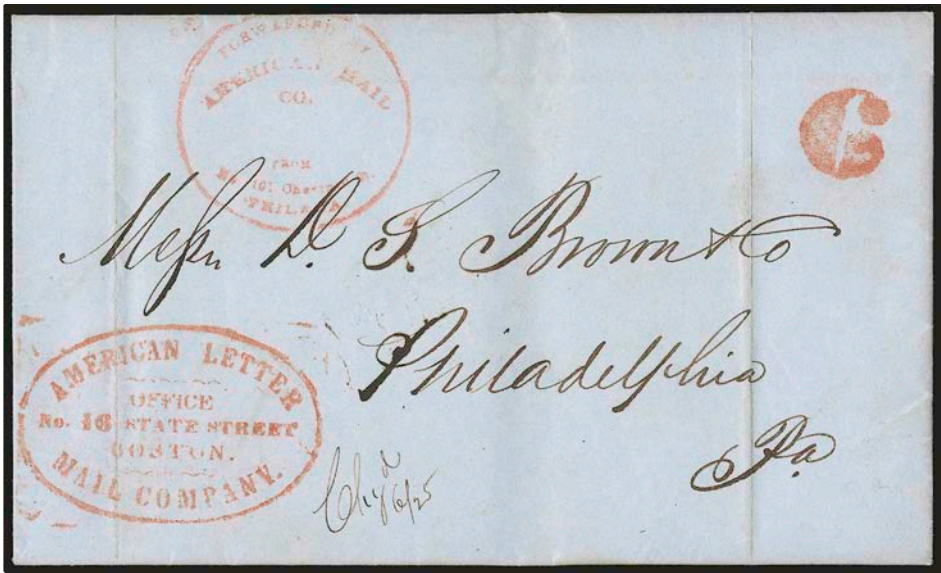 FORWARDED BY
AMERICAN MAIL
CO.
FROM
No. 101
PHILADA
6
Messrs D. S. Brown & Co
Philadelphia
Pa
AMERICAN LETTER
OFFICE
No. 16 STATE STREET
BOSTON.
MAIL COMPANY.